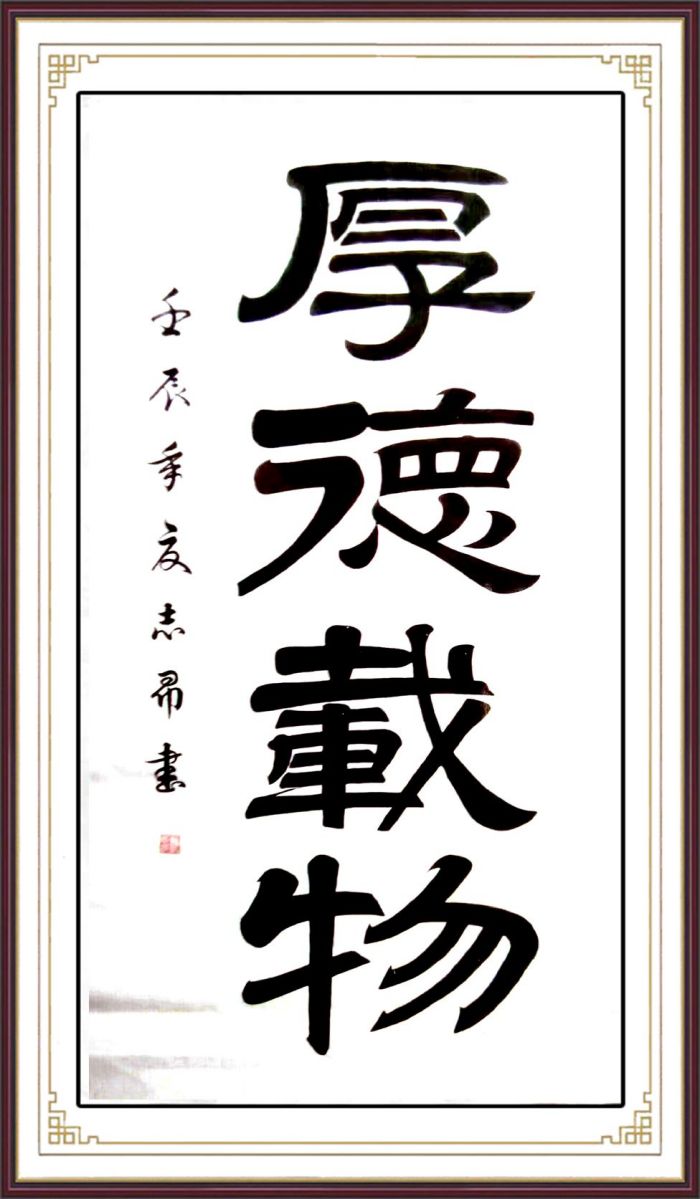 厚德載物
壬辰年夏志書